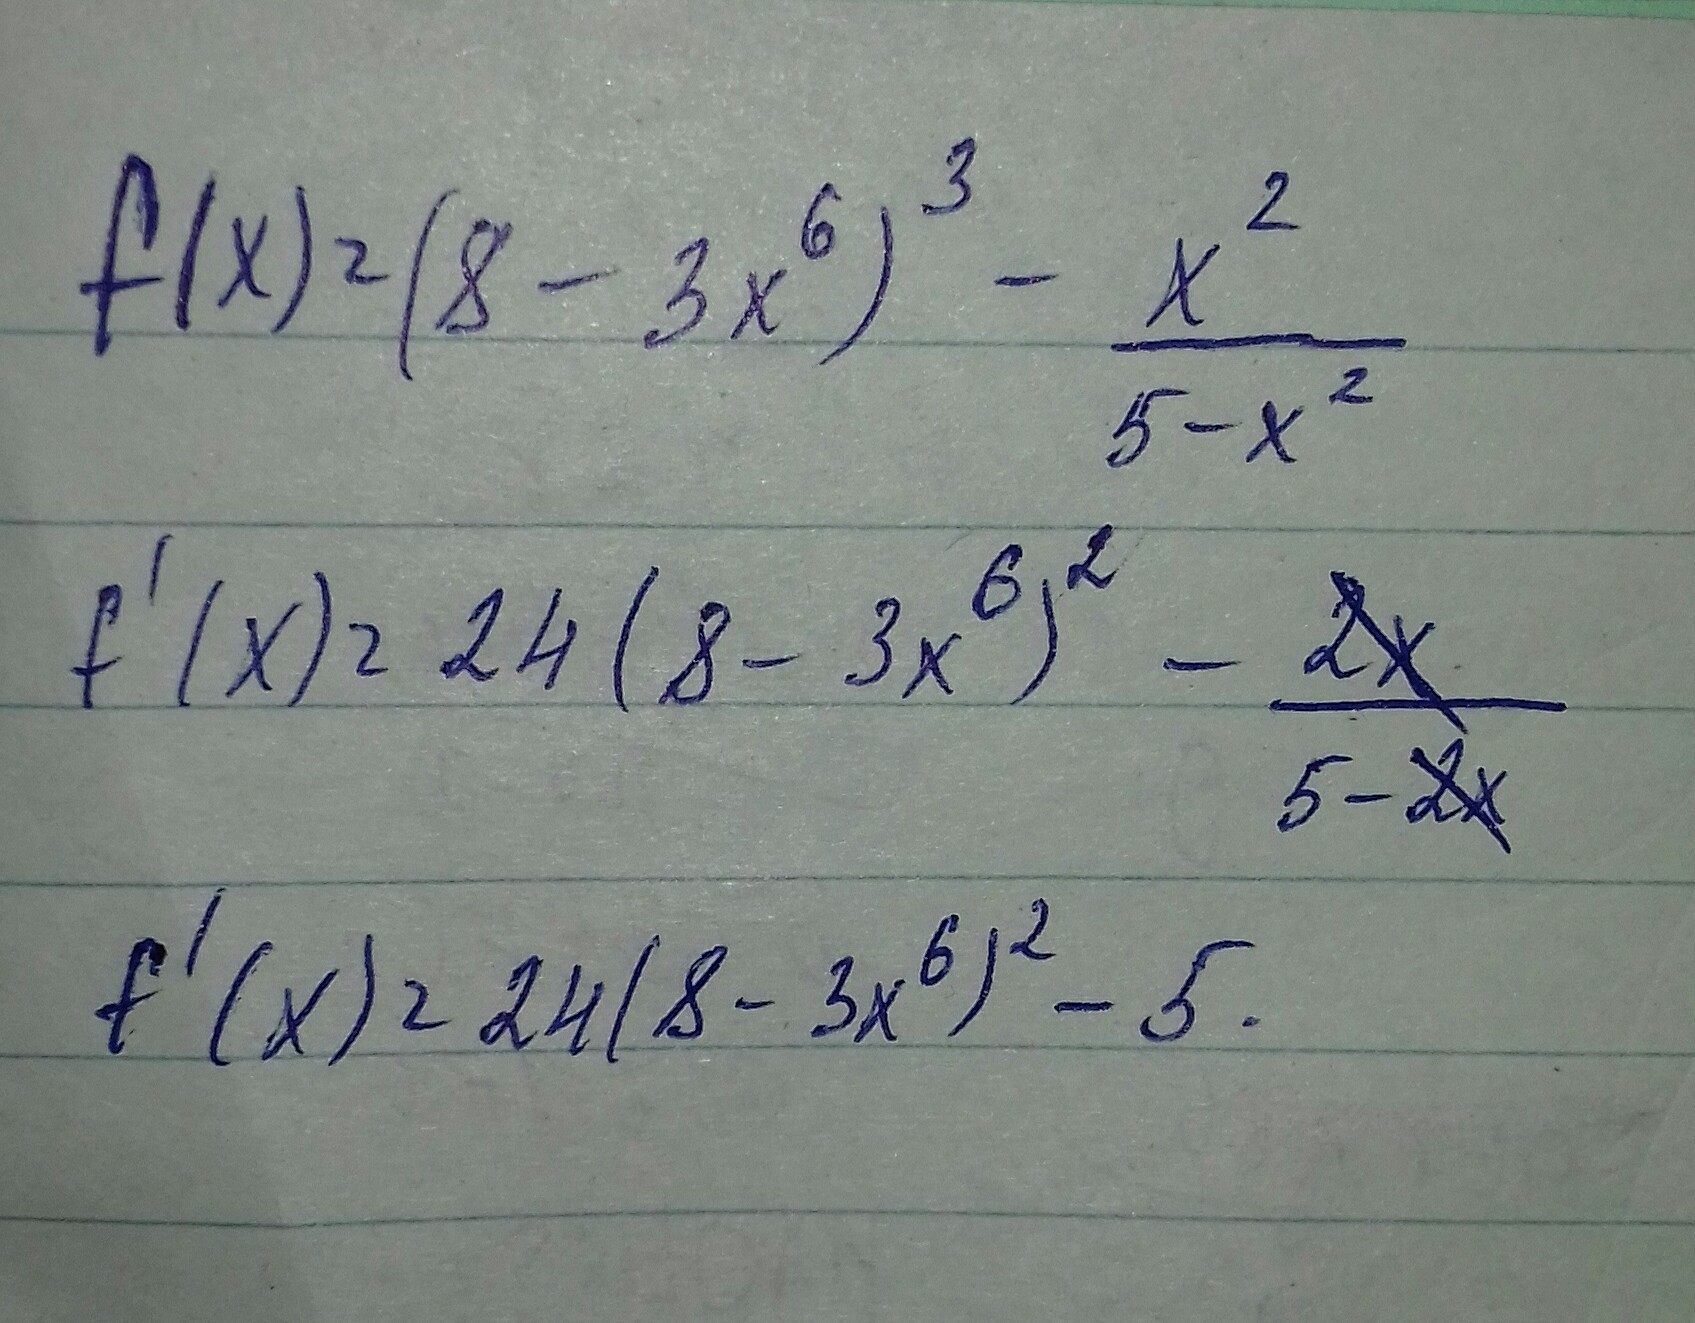 f(x)=(8-3x⁶)³-x²/(5-x²)
f'(x)=24(8-3x⁶)²-2x/(5-2x)
f'(x)=24(8-3x⁶)²-5.